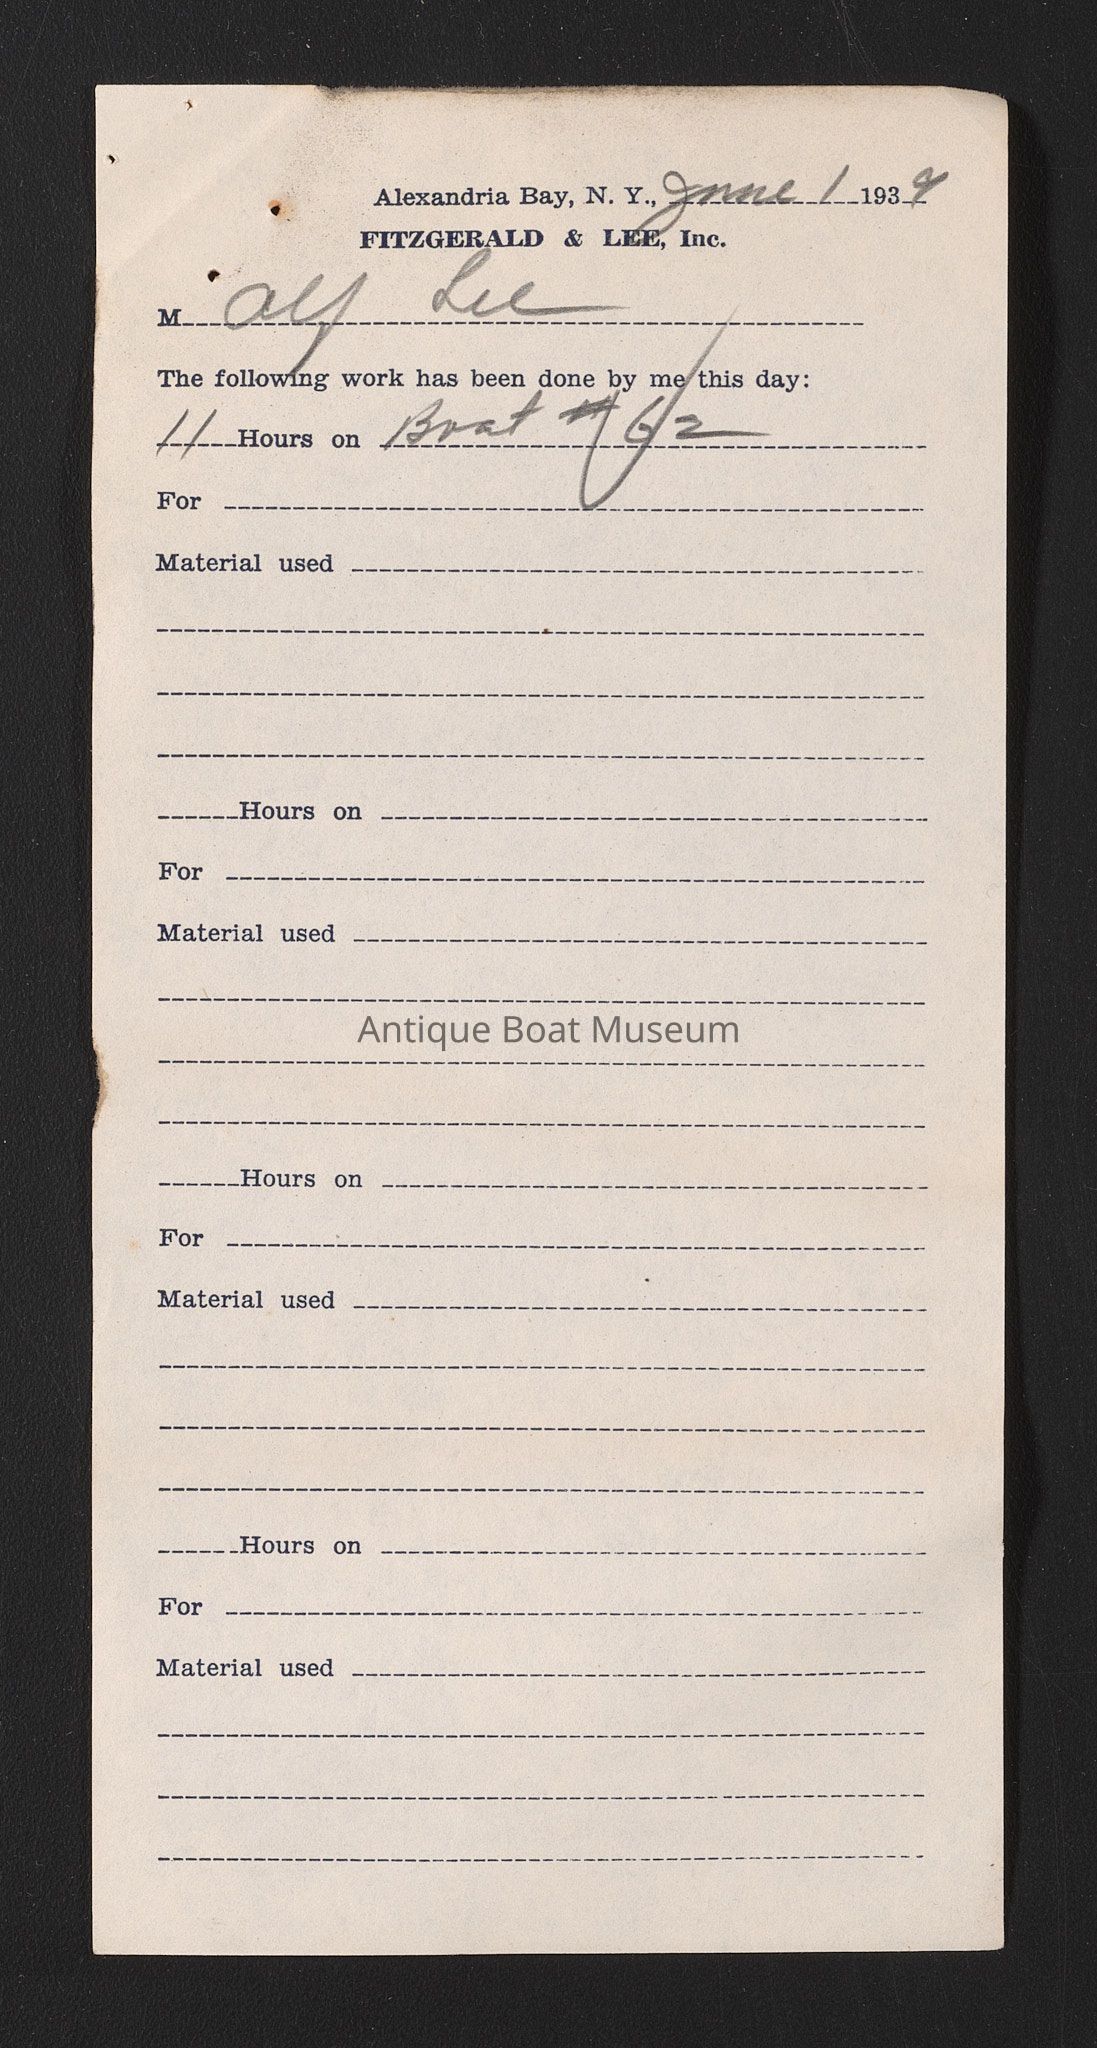 Alexandria Bay, N. Y., June 1 1939
FITZGERALD & LEE, Inc.
M Alf Lee
The following work has been done by me this day:
11 Hours on Boat # 62
For
Material used
Hours on
For
Material used
Antique Boat Museum
Hours on
For
Material used
Hours on
For
Material used